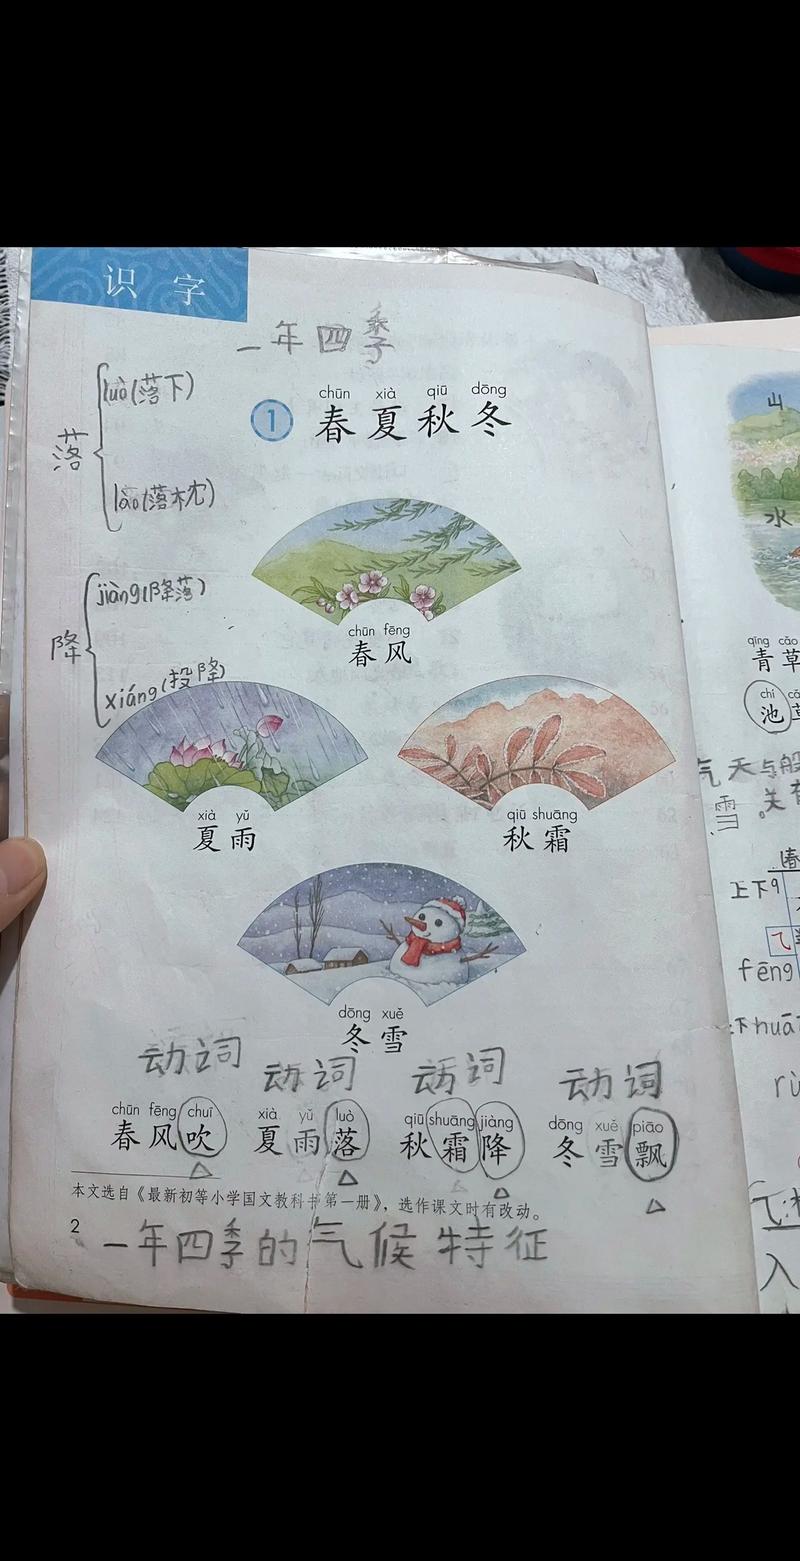 识字
一年四季
luò(落下)
落
lào(落枕)
jiàng(降落)
降
xiáng(投降)
chūn xià qiū dōng
1 春夏秋冬
chūn fēng
春风
xià yǔ
夏雨
qiū shuāng
秋霜
dōng xuě
冬雪
动词 动词 动词 动词
chūn fēng chuī xià yǔ luò qiū shuāng jiàng dōng xuě piāo
春风吹 夏雨落 秋霜降 冬雪飘
本文选自《最新初等小学国文教科书第一册》，选作课文时有改动。
2
一年四季的气候特征
山
水
qīng cǎo
青草
chí
池
气 天与般
雪
上下
fēng
下huā
入